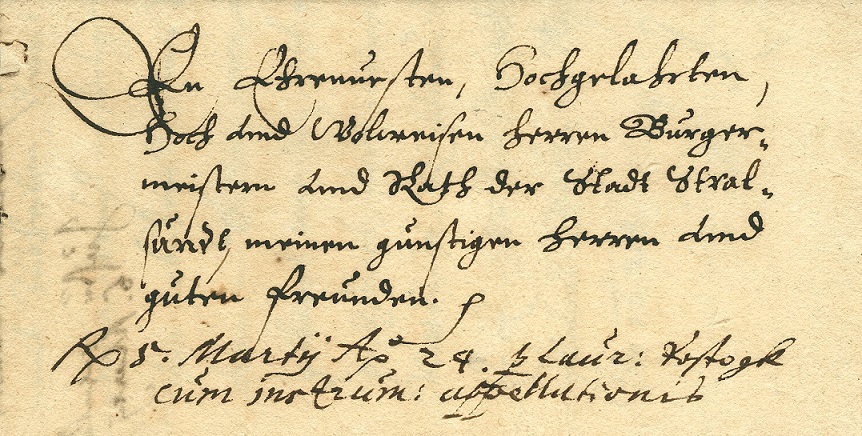 Den Ehrenuesten, Hochgelahrten,
Hoch vnd Wolweisen herren Burger=
meistern vnd Rath der Stadt Stral=
sundt, meinen gunstigen herren vnd
guten freunden.
5. Martij Ao 24. p Laur: Rostogk
cum instrum: appellationis